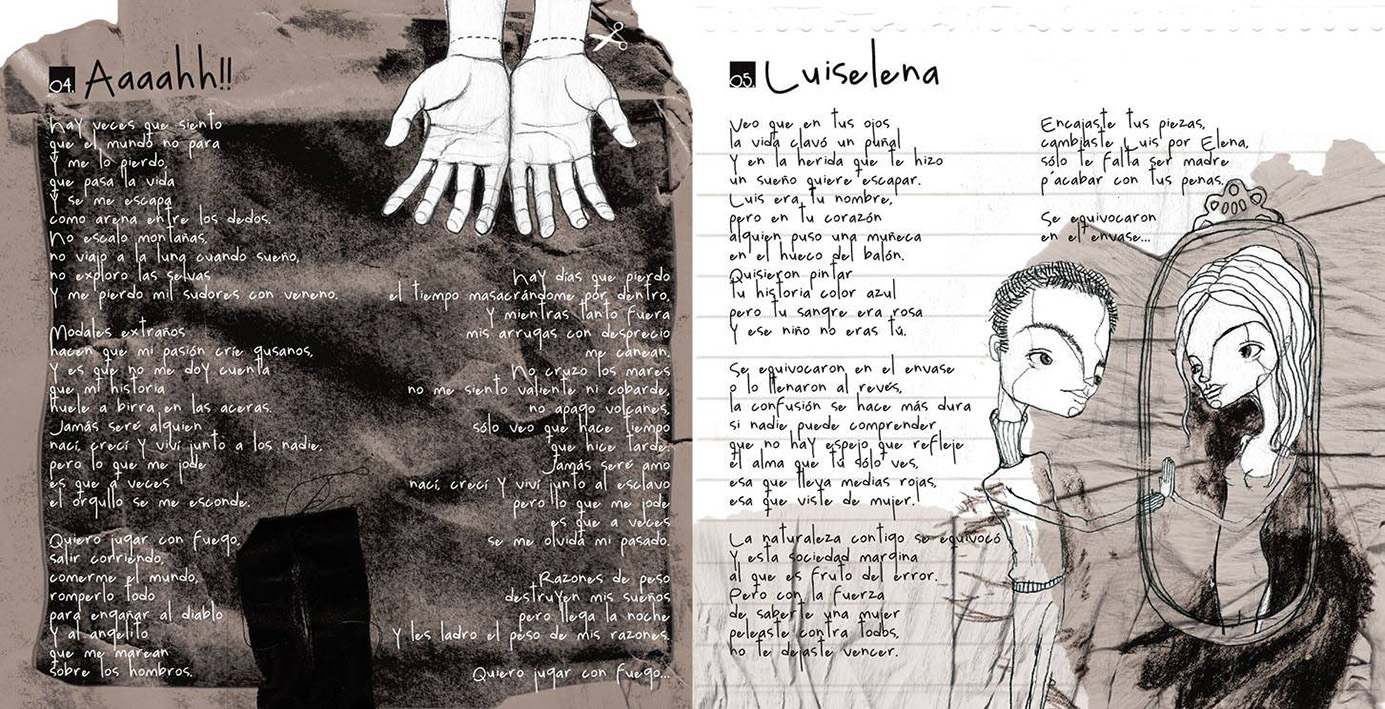 04. Aaaahh!!
Hay veces que siento
que el mundo no para
Y me lo pierdo,
que pasa la vida
Y se me escapa
como arena entre los dedos.
No escalo montañas,
no viajo a la luna cuando sueño,
no exploro las selvas
Y me pierdo mil sudores con veneno.
Modales extraños
hacen que mi pasión críe gusanos,
Y es que no me doy cuenta
que mi historia
huele a birra en las aceras.
Jamás seré alguien
nací, crecí y viví junto a los nadie,
pero lo que me jode
es que a veces
el orgullo se me esconde.
Quiero jugar con fuego,
salir corriendo,
comerme el mundo,
romperlo todo
para engañar al diablo
Y al angelito
que me marean
sobre los hombros.
Hay días que pierdo
el tiempo masacrándome por dentro,
Y mientras tanto fuera
mis arrugas con desprecio
me canean.
No cruzo los mares
no me siento valiente ni cobarde,
no apago volcanes,
sólo veo que hace tiempo
que hice tarde.
Jamás seré amo
nací, crecí y viví junto al esclavo
pero lo que me jode
es que a veces
se me olvida mi pasado.
Razones de peso
destruyen mis sueños
pero llega la noche
Y les ladro el peso de mis razones.
Quiero jugar con fuego...
05. Luiselena
Veo que en tus ojos
la vida clavó un puñal
Y en la herida que te hizo
un sueño quiere escapar.
Luis era tu nombre,
pero en tu corazón
alguien puso una muñeca
en el hueco del balón.
Quisieron pintar
tu historia color azul
pero tu sangre era rosa
Y ese niño no eras tú.
Se equivocaron en el envase
o lo llenaron al revés,
la confusión se hace más dura
si nadie puede comprender
que no hay espejo que refleje
el alma que tú sólo ves,
esa que lleva medias rojas,
esa que viste de mujer.
La naturaleza contigo se equivocó
Y esta sociedad margina
al que es fruto del error.
Pero con la fuerza
de saberte una mujer
peleaste contra todos,
no te dejaste vencer.
Encajaste tus piezas,
cambiaste Luis por Elena,
sólo te falta ser madre
p'acabar con tus penas.
Se equivocaron
en el envase...